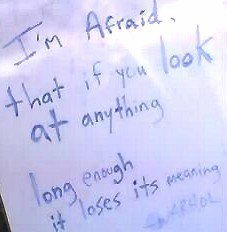 I'm Afraid.
that if you look
at anything
long enough
it loses its meaning